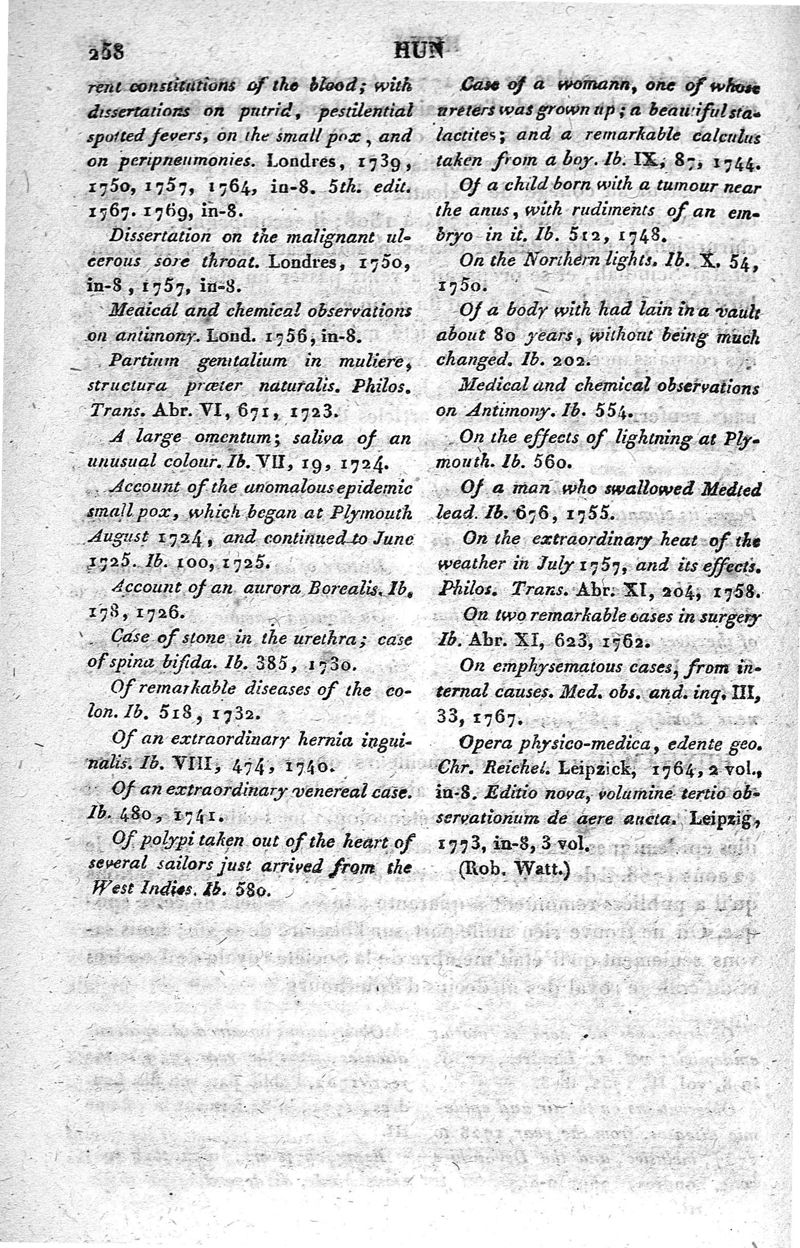 258
HUN
rent constitutions of the blood; with
dissertations on putrid, pestilential
spotted fevers, on the small pox, and
on peripneumonies. Londres, 1739,
1750, 1757, 1764, in-8. 5th. edit.
1567. 1769, in-8.
Dissertation on the malignant ul-
cerous sore throat. Londres, 1750,
in-8, 1757, in-8.
Medical and chemical observations
on antimony. Lond. 1756, in-8.
Partium genitalium in muliere,
structura præter naturalis. Philos.
Trans. Abr. VI, 671, 1723.
A large omentum; saliva of an
unusual colour. Ib. VII, 19, 1724.
Account of the anomalous epidemic
small pox, which began at Plymouth
August 1724, and continued to June
1725. Ib. 100, 1725.
Account of an aurora Borealis. Ib.
178, 1726.
Case of stone in the urethra; case
of spina bifida. Ib. 385, 1730.
Of remarkable diseases of the co-
lon. Ib. 518, 1732.
Of an extraordinary hernia ingui-
nalis. Ib. VIII, 474, 1740.
Of an extraordinary venereal case.
Ib. 480, 1741.
Of polypi taken out of the heart of
several sailors just arrived from the
West Indies. Ib. 580.
Case of a womann, one of whose
ureters was grown up; a beautiful sta-
lactites; and a remarkable calculus
taken from a boy. Ib. IX, 87, 1744.
Of a child born with a tumour near
the anus, with rudiments of an em-
bryo in it. Ib. 512, 1748.
On the Northern lights. Ib. X. 54,
1750.
Of a body with had lain in a vault
about 80 years, without being much
changed. Ib. 202.
Medical and chemical observations
on Antimony. Ib. 554.
On the effects of lightning at Ply-
mouth. Ib. 560.
Of a man who swallowed Medted
lead. Ib. 676, 1755.
On the extraordinary heat of the
weather in July 1757, and its effects.
Philos. Trans. Abr. XI, 204, 1758.
On two remarkable cases in surgery
Ib. Abr. XI, 623, 1762.
On emphysematous cases, from in-
ternal causes. Med. obs. and. inq. III,
33, 1767.
Opera physico-medica, edente geo.
Chr. Reichel. Leipzick, 1764, 2 vol.,
in-8. Editio nova, volumine tertio ob-
servationum de aere aucta. Leipzig,
1773, in-8, 3 vol.
(Rob. Watt.)